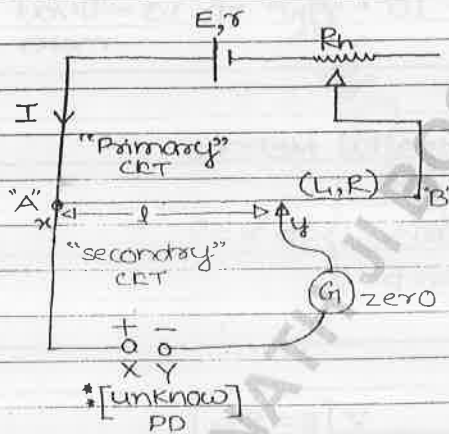 E, r
Rh
I
"Primary"
CKT
(L, R)
"A"
"B"
x
l
y
"secondry"
CKT
G
zero
+ −
X Y
[unknow]
PD